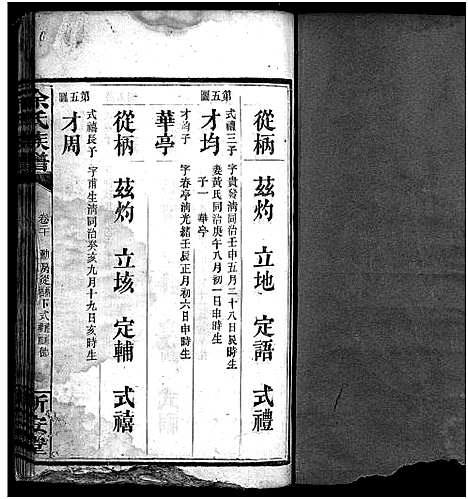 從柄 茲灼 立地 定語 式禮
第五圖
才均
式禮三子 字貴發淸同治壬申五月二十八日辰時生
妻黃氏同治庚午八月初一日申時生
子一 華亭
華亭
才均子 字春亭淸光緒壬辰正月初六日申時生
從柄 茲灼 立垓 定輔 式禧
第五圖
才周
式禧長子 字甫生淸同治癸亥九月十九日亥時生
余氏族譜
卷二十
新安堂